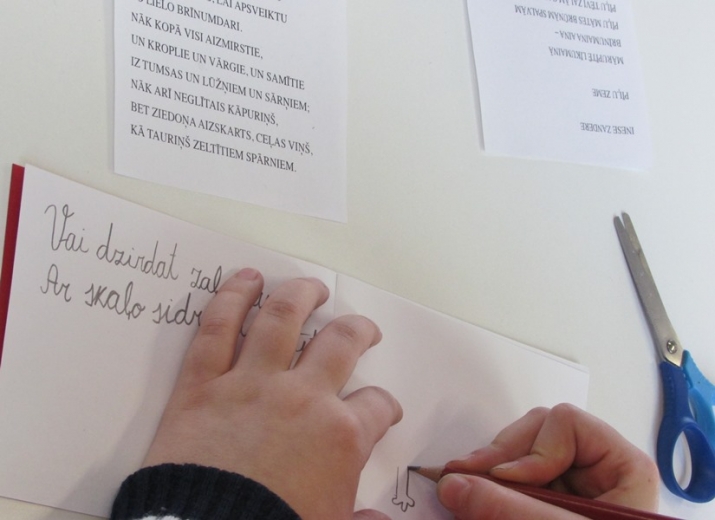 LAI APSVEIKTU
LIELO BRĪNUMDARI.
NĀK KOPĀ VISI AIZMIRSTIE,
UN KROPLIE UN VĀRGIE, UN SAMĪTIE
IZ TUMSAS UN LŪŽŅIEM UN SĀRŅIEM;
NĀK ARĪ NEGLĪTAIS KĀPURIŅŠ,
BET ZIEDOŅA AIZSKARTS, CEĻAS VIŅŠ,
KĀ TAURIŅŠ ZELTĪTIEM SPĀRNIEM.
INESE ZANDERE
PĪĻU ZEME
MĀRUPĪTE LĪKUMAINA
BRĪNUMAINA AINA –
PĪĻU MĀTES BRŪNĀM SPALVĀM
PĪĻU TĒVI
Vai dzirdat
Ar skaļo